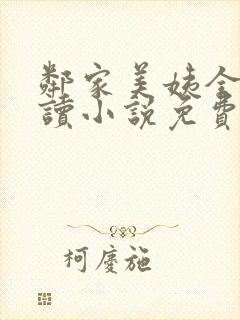 鄰家美姨全
讀小說免費
柯慶施